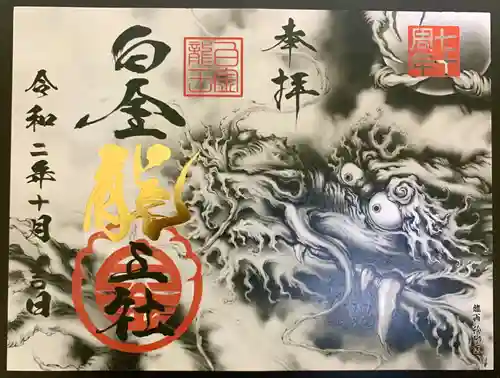 七十周年
奉拝
白金龍王
白金龍王社
令和二年十月吉日